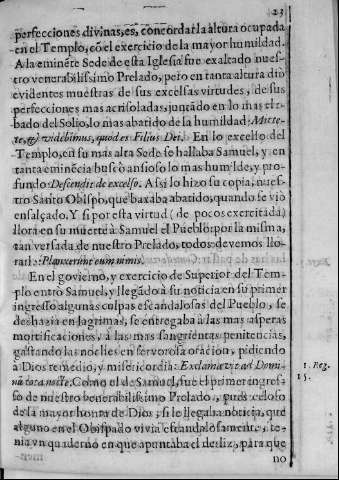 23
perfecciones divinas, es, concordar la altura ocupada
en el Templo, cō el exercicio de la mayor humildad.
A la eminēte Sede de esta Iglesia fue exaltado nuestro
venerabilissimo Prelado, pero en tanta altura diò
evidentes muestras de sus excelsas virtudes, de sus
perfecciones mas acrisoladas, juntādo en lo mas elevado
del Solio, lo mas abatido de la humildad: Mitte
te, & videbimus, quod es Filius Dei. En lo excelso del
Templo, en su mas alta Sede se hallaba Samuel, y en
tanta eminēcia buscò ansioso lo mas humilde, y profundo:
Descendit de excelso. Assi lo hizo su copia, nuestro
Santo Obispo, que baxaba abatido, quando se viò
ensalçado. Y si por esta virtud (de pocos exercitada)
llora en su muerte à Samuel el Pueblo: por la misma,
tan versada de nuestro Prelado, todos devemos llorarla:
Planxerunt eum nimis.
En el govierno, y exercicio de Superior del Templo
entrò Samuel, y llegādo à su noticia en su primer
ingresso algunas culpas escandalosas del Pueblo, se
deshazia en lagrimas, se entregaba à las mas asperas
mortificaciones, à las mas sangrientas penitencias,
gastando las noches en fervorosa oracion, pidiendo
à Dios remedio, y misericordia: Exclamavit ad Dominū
tota nocte. Como el de Samuel, fue el primer ingresso
de nuestro venerabilissimo Prelado, pues celoso
de la mayor honra de Dios, si le llegaba noticia, que
alguno en el Obispado vivia escandalosamente, tenia
vn quaderno en que apuntaba el desliz, para que
no
1. Reg.
15.